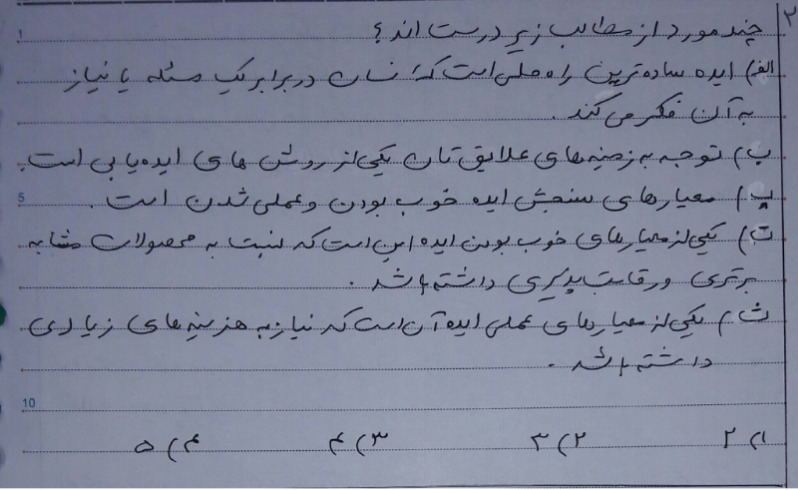 ۲ چند مورد از مطالب زیر درست اند؟
الف) ایده ساده‌ترین راه حلی است که انسان در برابر یک مسئله یا نیاز
به آن فکر می کند.
ب) توجه به زمینه های علایق تان یکی از روش های ایده یابی است.
پ) معیارهای سنجش ایده خوب بودن و عملی شدن است.
ت) یکی از معیارهای خوب بودن ایده این است که نسبت به محصولات مشابه
برتری و رقابت پذیری داشته باشد.
ث) یکی از معیارهای عملی ایده آن است که نیاز به هزینه های زیادی
داشته باشد.
۱) ۲ ۲) ۳ ۳) ۴ ۴) ۵
1
5
10